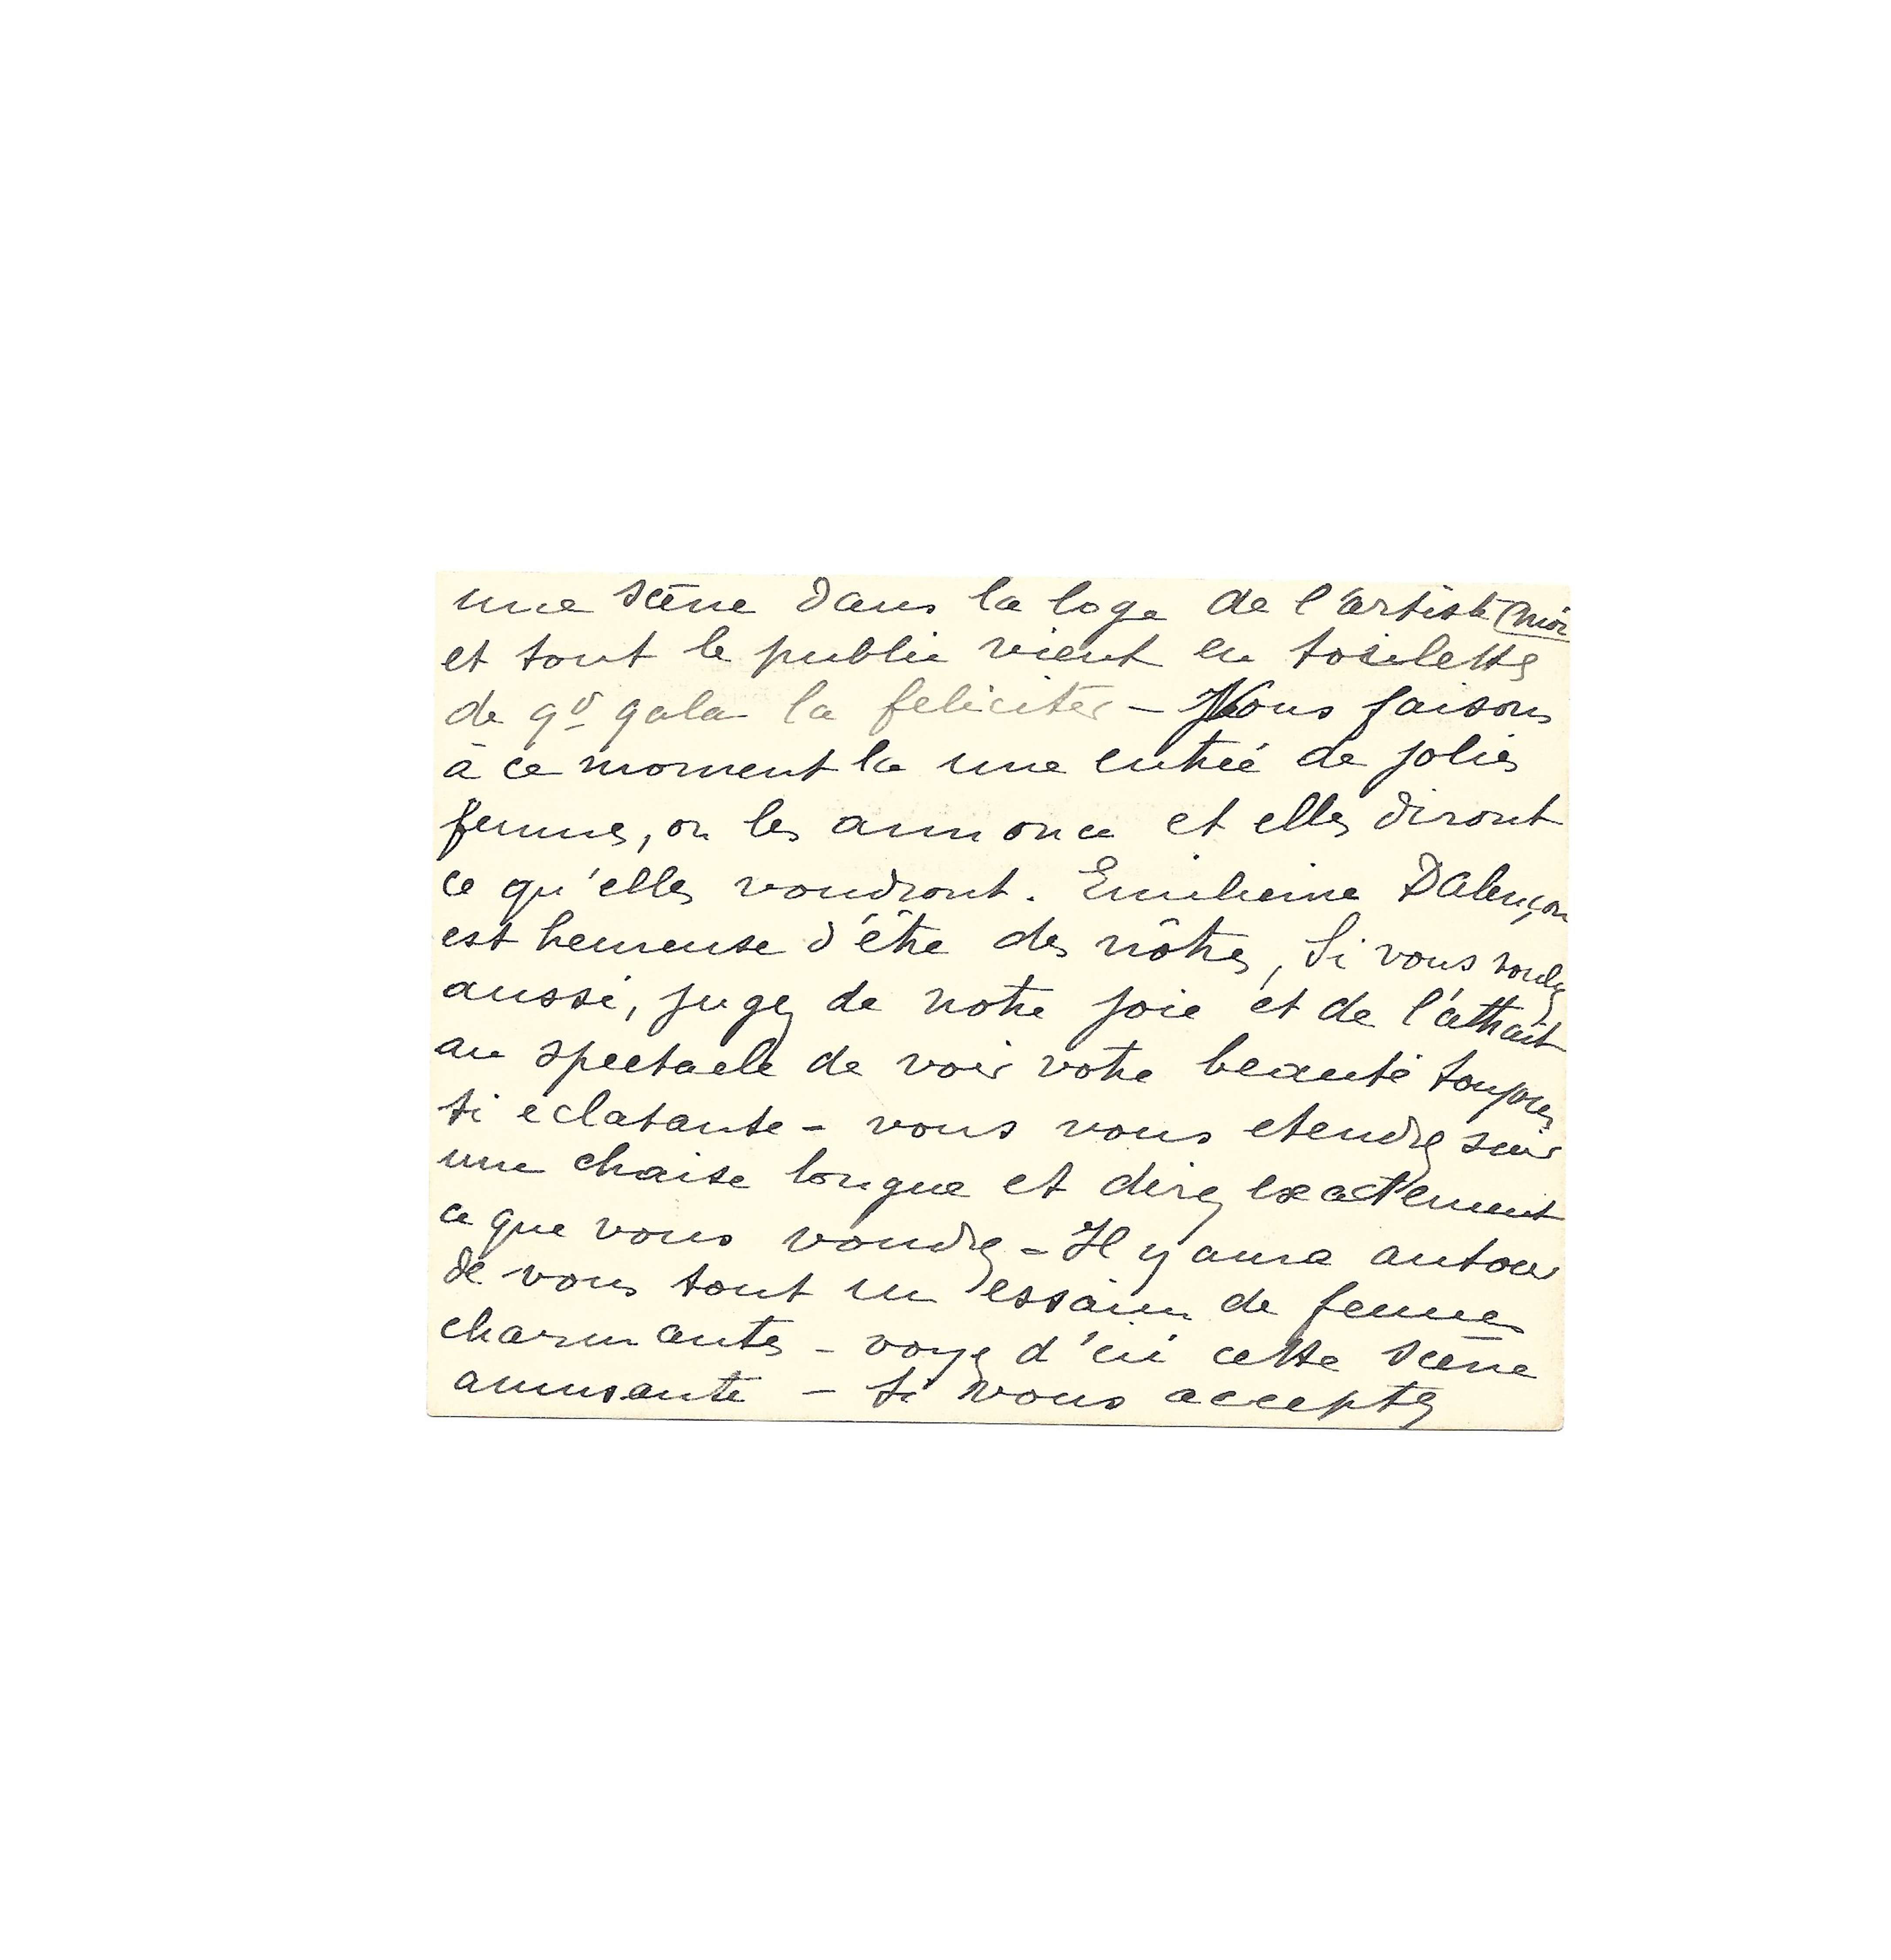 une scène dans la loge de l'artiste (moi
et tout le public vient en toilettes
de gd gala la feliciter – Nous faisons
à ce moment la une entrée de jolies
femmes, on les annonce et elles diront
ce qu'elles voudront. Emilienne Dalençon
est heureuse d'être des nôtres, si vous voulez
aussi, jugez de notre joie et de l'attrait
au spectacle de voir votre beauté toujours
si eclatante – vous vous etendrez sur
une chaise longue et direz exactement
ce que vous voudrez – Il y aura autour
de vous tout un essaim de femmes
charmantes – voyez d'ici cette scène
amusante – si vous acceptez